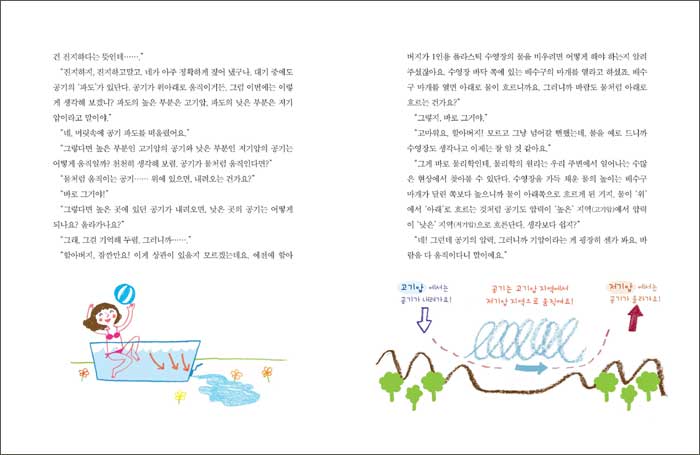 건 진지하다는 뜻인데……."
"진지하지, 진지하고말고. 네가 아주 정확하게 짚어 냈구나. 대기 중에도
공기의 '파도'가 있단다. 공기가 위아래로 움직이거든. 그럼 이번에는 이렇
게 생각해 보겠니? 파도의 높은 부분은 고기압, 파도의 낮은 부분은 저기
압이라고 말이야."
"네, 머릿속에 공기 파도를 떠올렸어요."
"그렇다면 높은 부분인 고기압의 공기와 낮은 부분인 저기압의 공기는
어떻게 움직일까? 천천히 생각해 보렴. 공기가 물처럼 움직인다면?"
"물처럼 움직이는 공기…… 위에 있으면, 내려오는 건가요?"
"바로 그거야!"
"그렇다면 높은 곳에 있던 공기가 내려오면, 낮은 곳의 공기는 어떻게
되나요? 올라가나요?"
"그래, 그걸 기억해 두렴. 그러니까……."
"할아버지, 잠깐만요! 이게 상관이 있을지 모르겠는데요. 예전에 할아
버지가 1인용 플라스틱 수영장의 물을 비우려면 어떻게 해야 하는지 알려
주셨잖아요. 수영장 바닥 쪽에 있는 배수구의 마개를 열라고 하셨죠. 배수
구 마개를 열면 아래로 물이 흐르니까요. 그러니까 바람도 물처럼 아래로
흐르는 건가요?"
"그렇지, 바로 그거야."
"고마워요, 할아버지! 모르고 그냥 넘어갈 뻔했는데, 물을 예로 드니까
수영장도 생각나고 이제는 잘 알 것 같아요."
"그게 바로 물리학인데, 물리학의 원리는 우리 주변에서 일어나는 수많
은 현상에서 찾아볼 수 있단다. 수영장을 가득 채운 물의 높이는 배수구
마개가 달린 쪽보다 높으니까 물이 아래쪽으로 흐르게 된 거지. 물이 '위'
에서 '아래'로 흐르는 것처럼 공기도 압력이 '높은' 지역(고기압)에서 압력
이 '낮은' 지역(저기압)으로 흐른단다. 생각보다 쉽지?"
"네! 그런데 공기의 압력, 그러니까 기압이라는 게 굉장히 센가 봐요. 바
람을 다 움직이다니 말이에요."
고기압 에서는
공기가 내려가요!
공기는 고기압 지역에서
저기압 지역으로 움직여요!
저기압 에서는
공기가 올라가요!